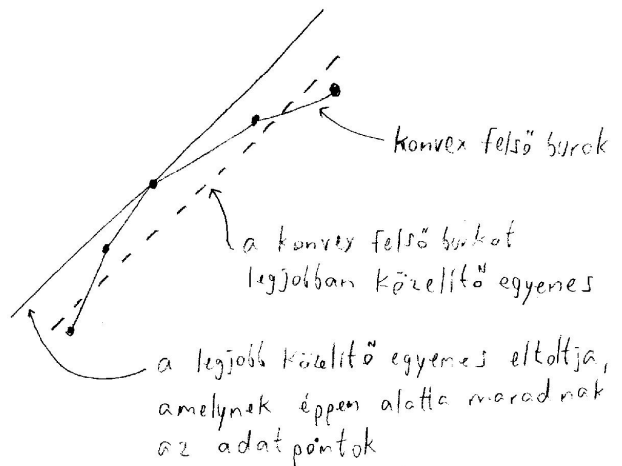 konvex felső burok
a konvex felső burkot
legjobban közelítő egyenes
a legjobb közelítő egyenes eltoltja,
amelynek éppen alatta maradnak
az adatpontok